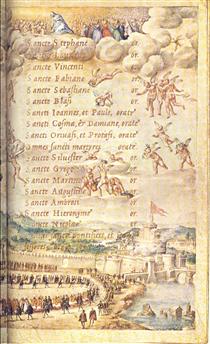 Sancte Stephane or.
Sancte Vincenti or.
Sancte Fabiane or.
Sancte Sebastiane or.
Sancte Blasi or.
Sancti Ioannes, et Paule, orate
Sancti Cosma, & Damiane, orate
Sancti Geruasi, et Protasi, orate
Omnes sancti martyres orate
Sancte Siluester or.
Sancte Grego or.
Sancte Martine or.
Sancte Augustine or.
Sancte Ambrosi or.
Sancte Hieronyme or.
Sancte Nicolae or.
sancti pontifices, et